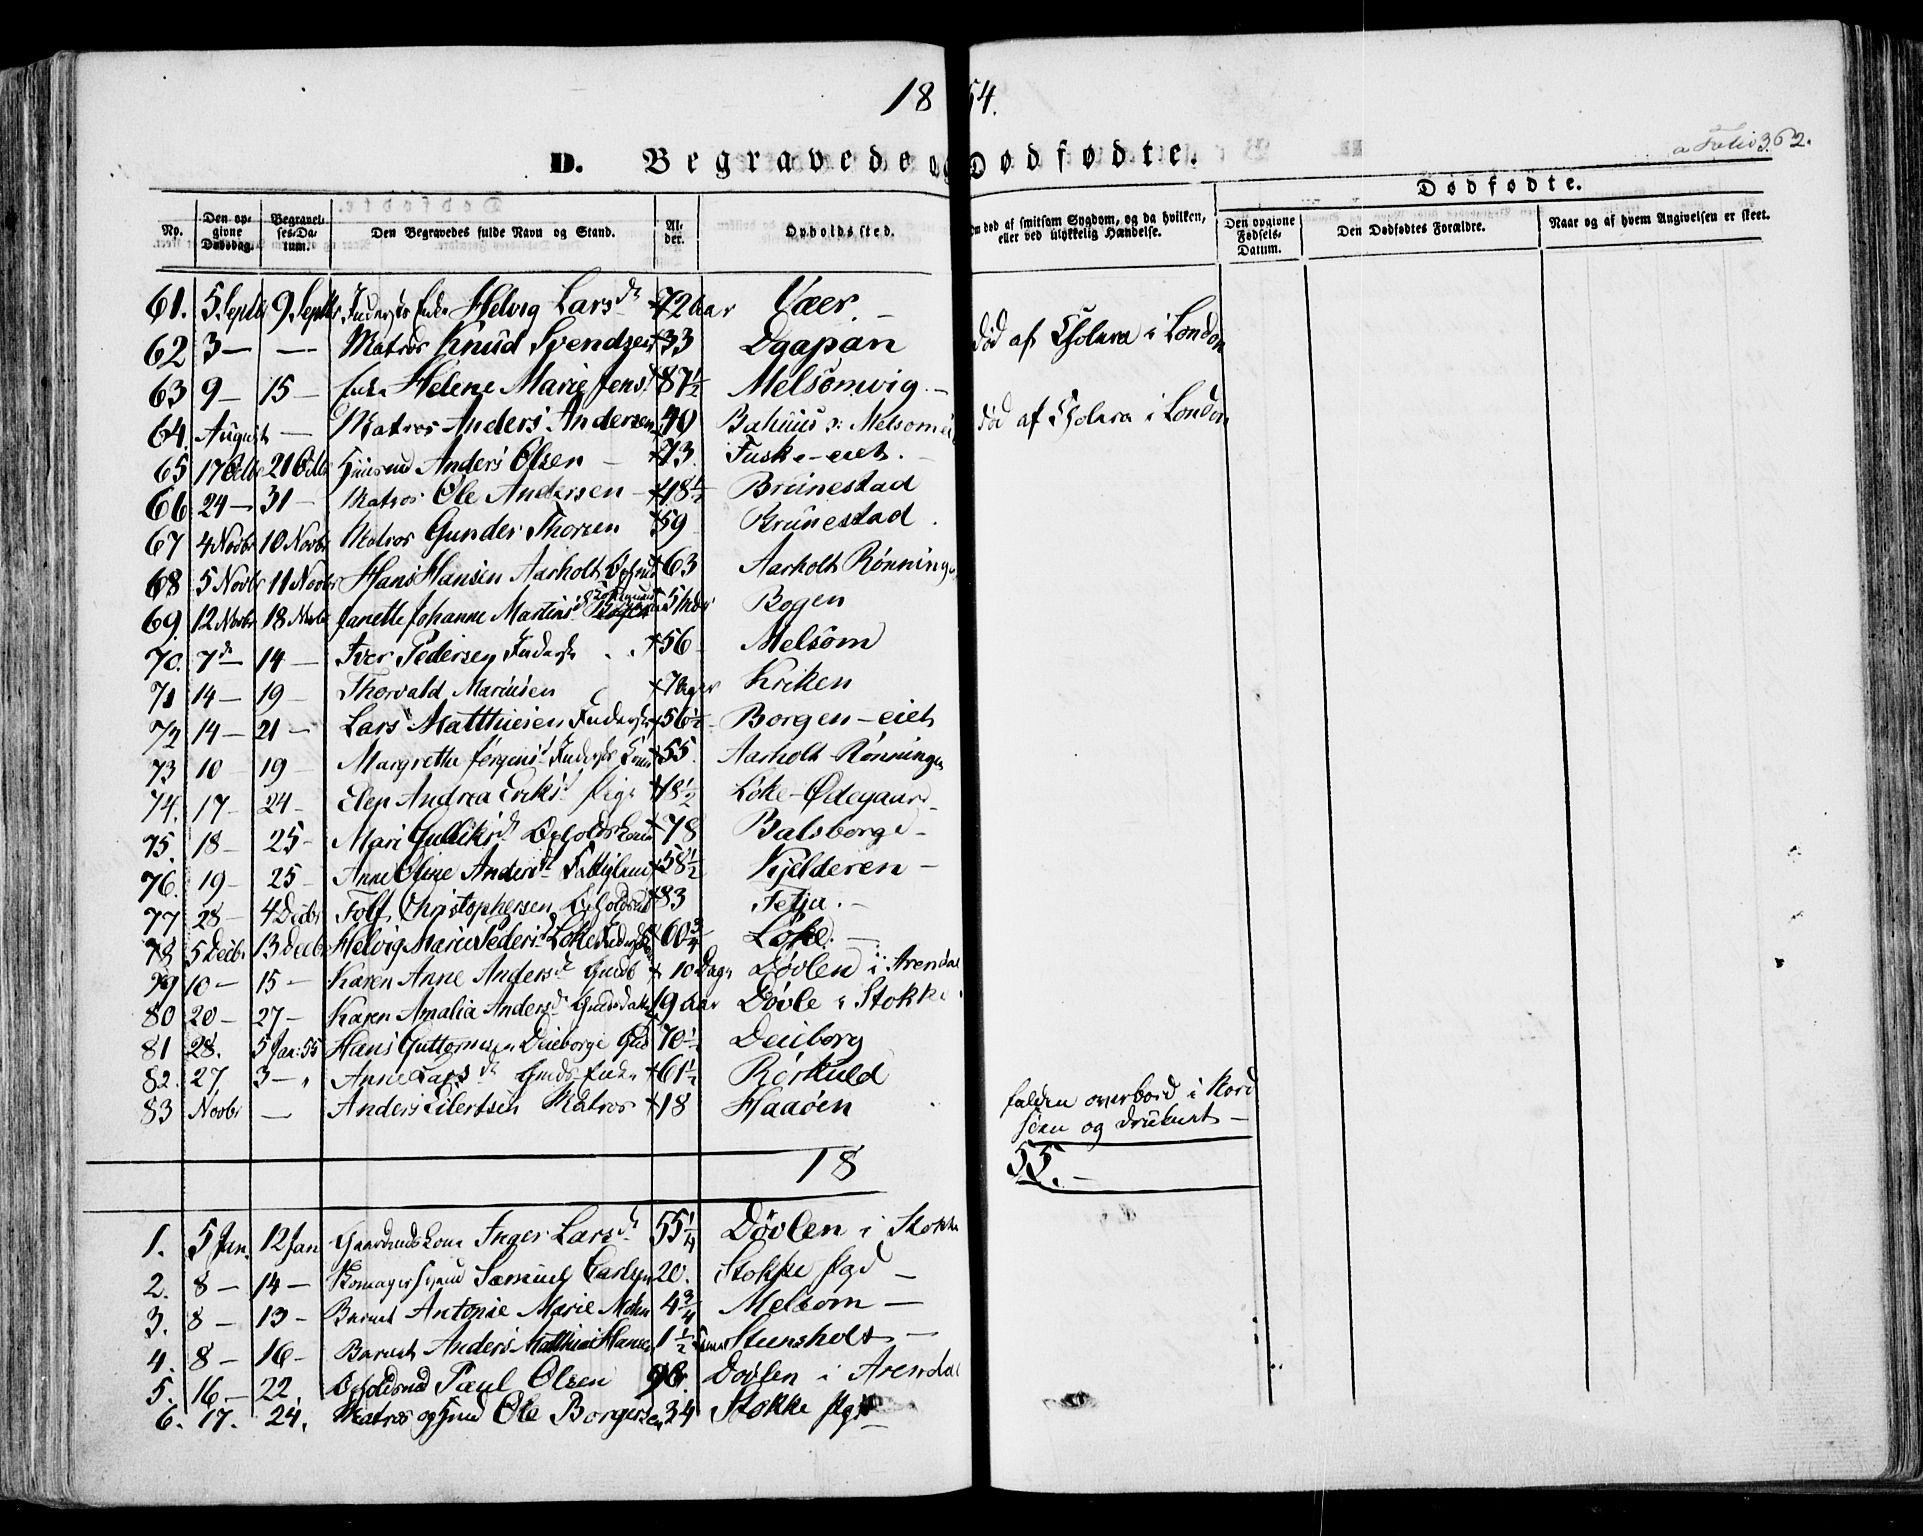 1854.
a Folio 362.
D. Begravede og Dødfødte.
Dødfødte.
No. Den opgivne Dødsdag. Begravelses-Datum. Den Begravedes fulde Navn og Stand. Alder. Opholdssted. Om død af smitsom Sygdom, og da hvilken, eller ved ulykkelig Hændelse. Den opgivne Fødsels-Datum. Den Dødfødtes Forældre. Naar og af hvem Angivelsen er skeet.
61. 5 Septbr 9 Septbr Inderste Enke Helvig Larsdr 72 aar Væer. –
62 3 – – Matros Knud Svendsen 33 Daapan død af Cholera i London
63 9 – 15 – Enke Helene Marie Jensdr 87½ Melsomvig. –
64. August – Matros Anders Andersen 40 Bahuus v: Melsom død af Cholera i London
65. 17 Octbr 21 Octbr Huusmd Anders Olsen – 73. Fuske-eiet. –
66 24 – 31 – Matros Ole Andersen – 48½ Brunestad
67 4 Novbr 10 Novbr Matros Gunder Thorsen 59 Brunestad
68 5 Novbr 11 Novbr Hans Hansen Aarholt 63 Aarholt Rønningen
69. 12 Novbr 18 Novbr Janette Johanne Martinsdr Bogen
70. 7de – 14 – Iver Pedersen Inderste 56 Melsom
71 14 – 19 – Thorvald Mariusen 7 Kriken
72 14 – 21 – Lars Matthiesen Inderste 56½ Borgen-eiet
73 10 – 19 – Margrethe Jørgensdr Inderste Kone 55. Aarholt-Rønningen
74. 17 – 24 – Elen Andrea Eriksdr Pige 18½ Løke-Ødegaard
75. 18 – 25 – Mari Gulliksdr Opholds Kone 78 Balsborge –
76. 19 – 25 – Anne Oline Andersdr Fattiglem 58½ Kjelderen –
77 28 – 4 Decbr Tolf Christophersen Opholdsmd 83 Fetja. –
78 5 Decbr 13 Decbr Helvig Marie Pedersdr Løke Inderste 60¾ Løke. –
79 10 – 15 – Karen Anne Andersdr 10 Dage Døvlen i Arendal
80 20 – 27 – Karen Amalia Andersdr 19 aar Døvle i Stokke
81 28. 5 Jan: 55 Hans Guttormsen Deieborge 70½ Deieborg
82. 27 3 – Anne Larsdr Gmds Enke 61½ Rørkuld
83 Novbr – Anders Eilertsen Matros 18 Haaøen falden overbord i Nord
søen og druknet –
1855. –
1. 5 Jan. 12 Jan Gaardmds Kone Inger Larsdr 55¼ Døvlen i Stokke
2. 8 – 14 – Skomagersvend Samuel Carlsen 20. Stokke Pgd –
3. 8 – 13 – Barnet Antonie Marie 4¾ Melsom –
4. 8 – 16 – Barnet Anders Matthias Hansen 1½ Steensholt –
5. 16 – 22. Opholdsmd Paul Olsen 90. Døvlen i Arendal
6. 17. 24. Matros og Gmd Ole Borgersen 34 Stokke Pgd –